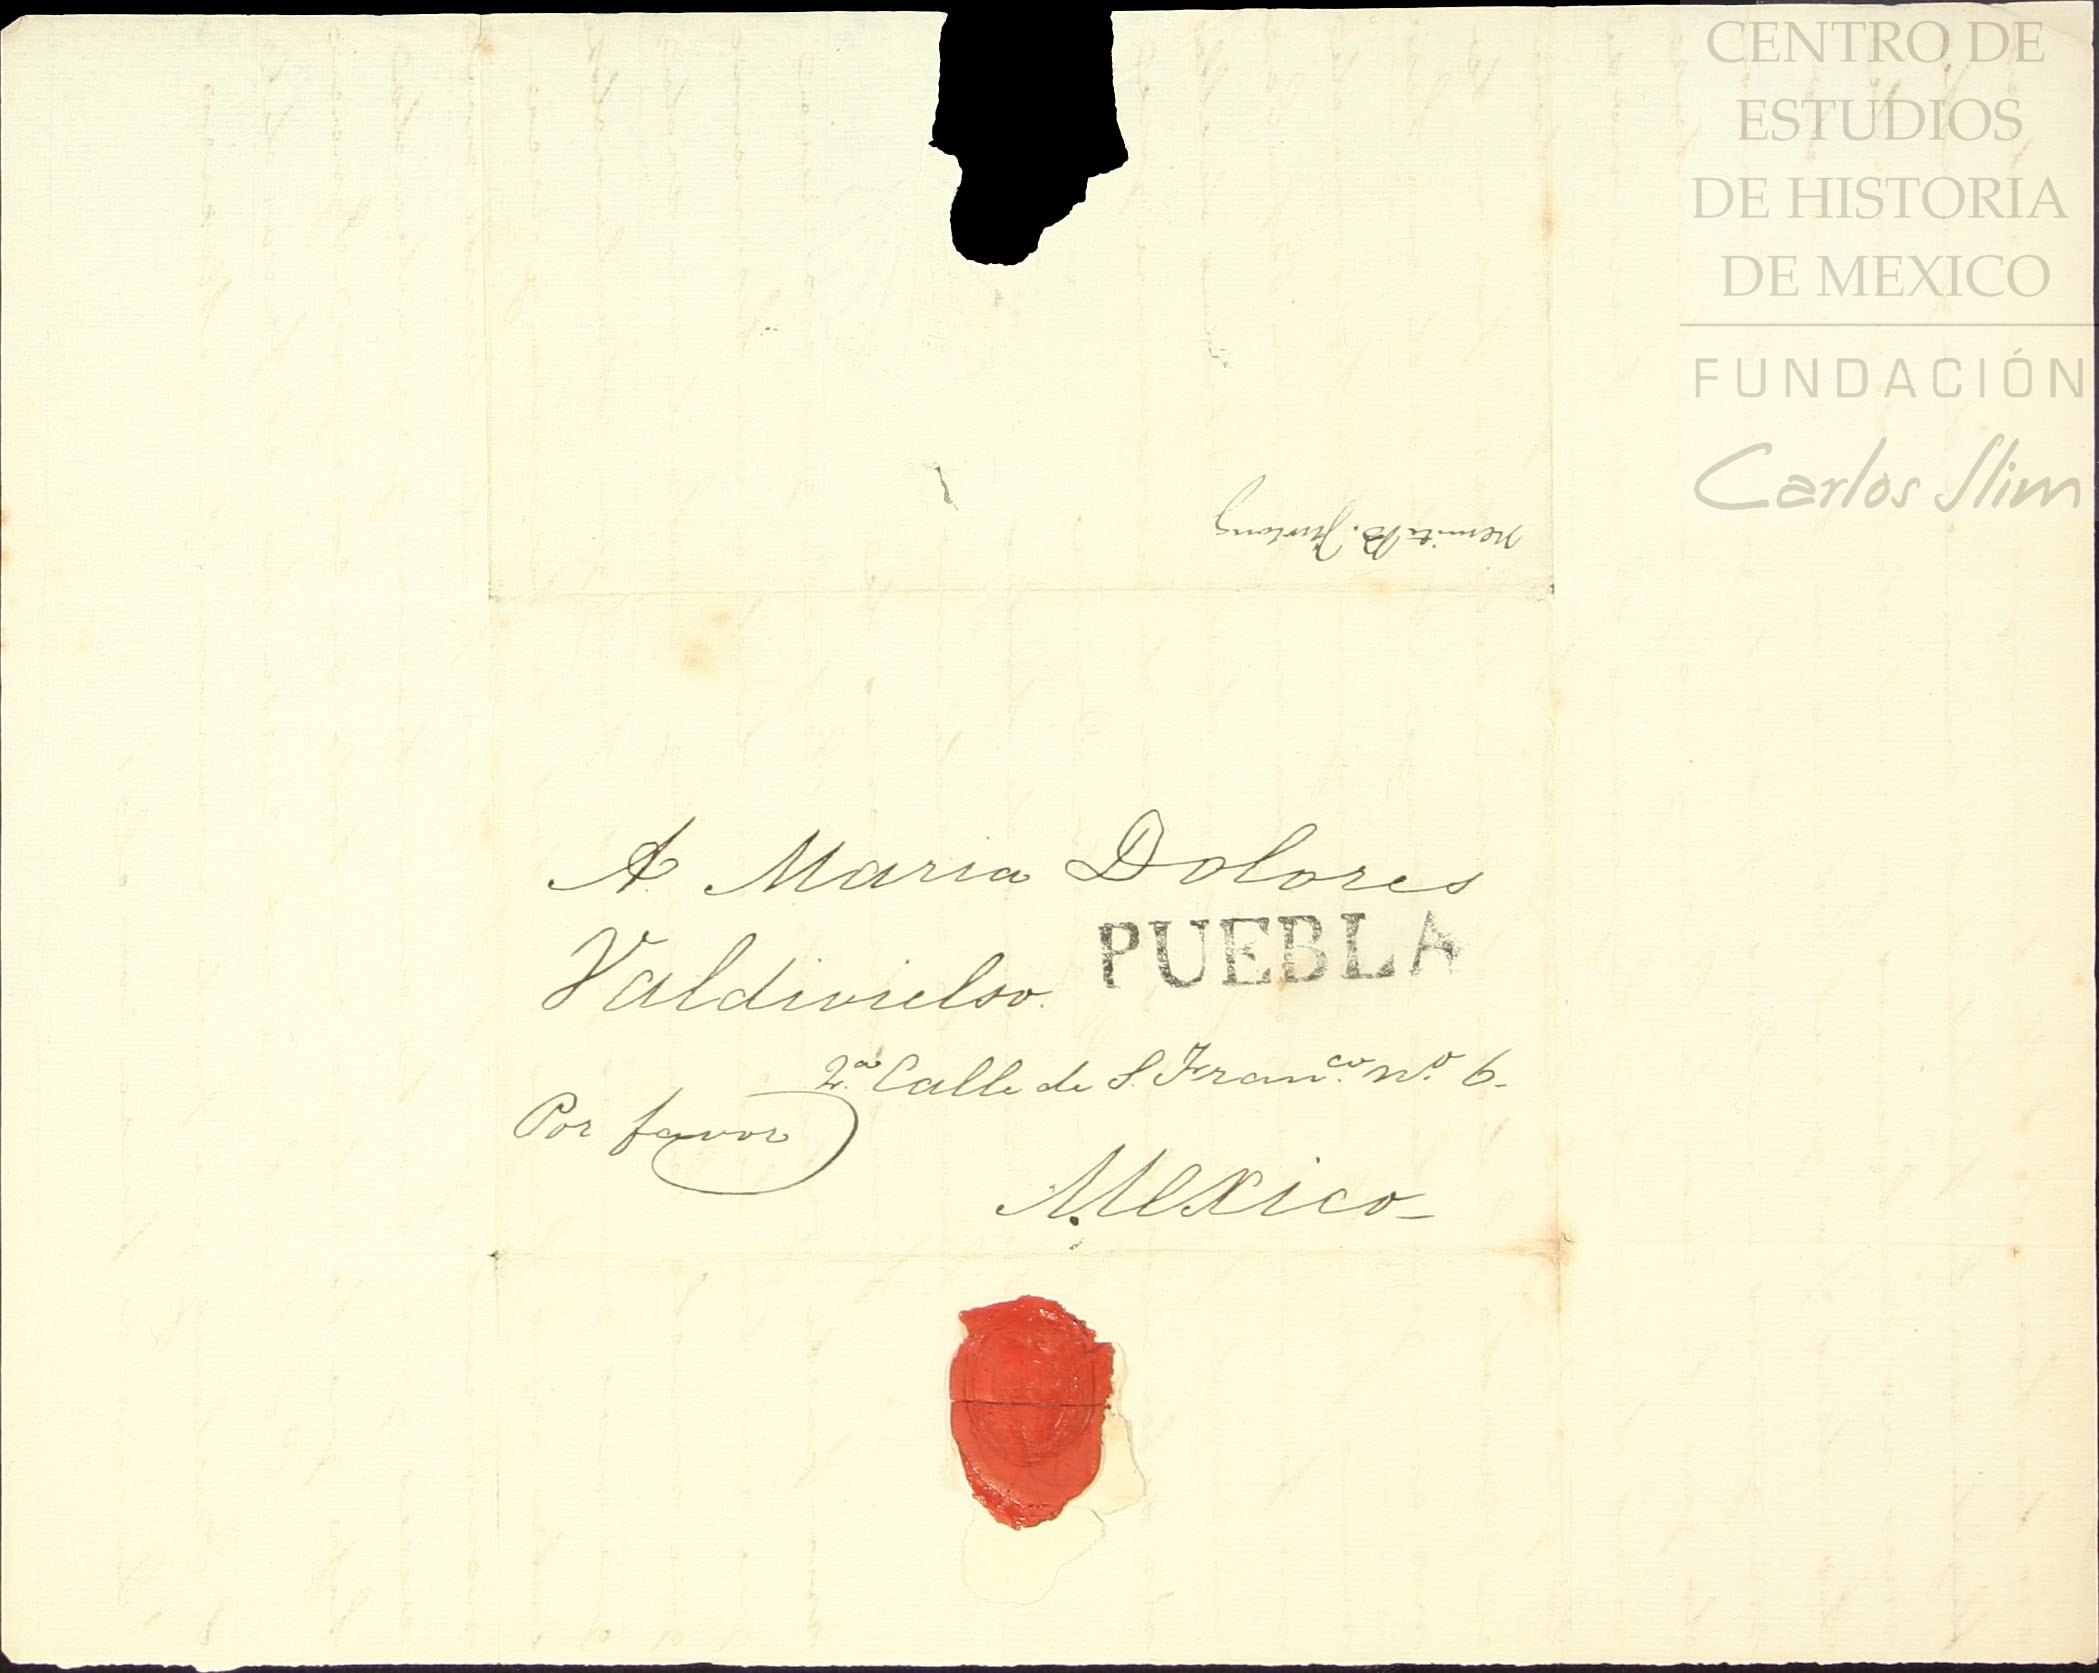 CENTRO DE
ESTUDIOS
DE HISTORIA
DE MEXICO
FUNDACIÓN
Carlos Slim
Remite B. Furlong
A Maria Dolores
Valdivielso.
PUEBLA
2.ª Calle de S. Fran.co n.o 6.
Por favor
Mexico